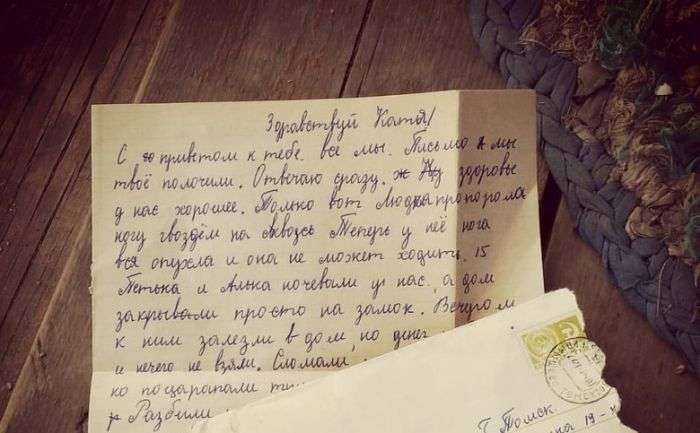 Здравствуй Катя!
С приветом к тебе. все мы. Письмо мы
твоё полочили. Отвечаю сразу. здоровье
у нас хорошее. Только вот Людка пропорола
ногу гвоздём на сквозь Теперь у неё нога
вся опухла и она не может ходить. 15
Петька и Алька ночевали у нас, а дом
закрывали просто на замок. Вечером
к ним залезли в дом, но денег
и нечего не взяли. Сломали
ко поцарапали
Разбили
г. Томск
19